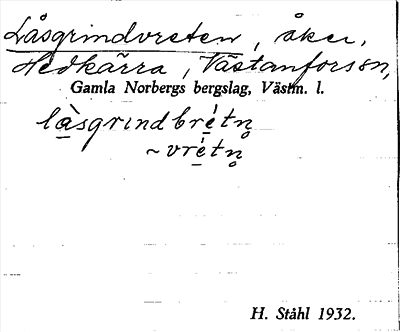 Låsgrindvreten, åker,
Hedkärra, Västanfors sn,
Gamla Norbergs bergslag, Västm. l.
lå̀sgrindbrétn̥
~vrétn̥
H. Ståhl 1932.